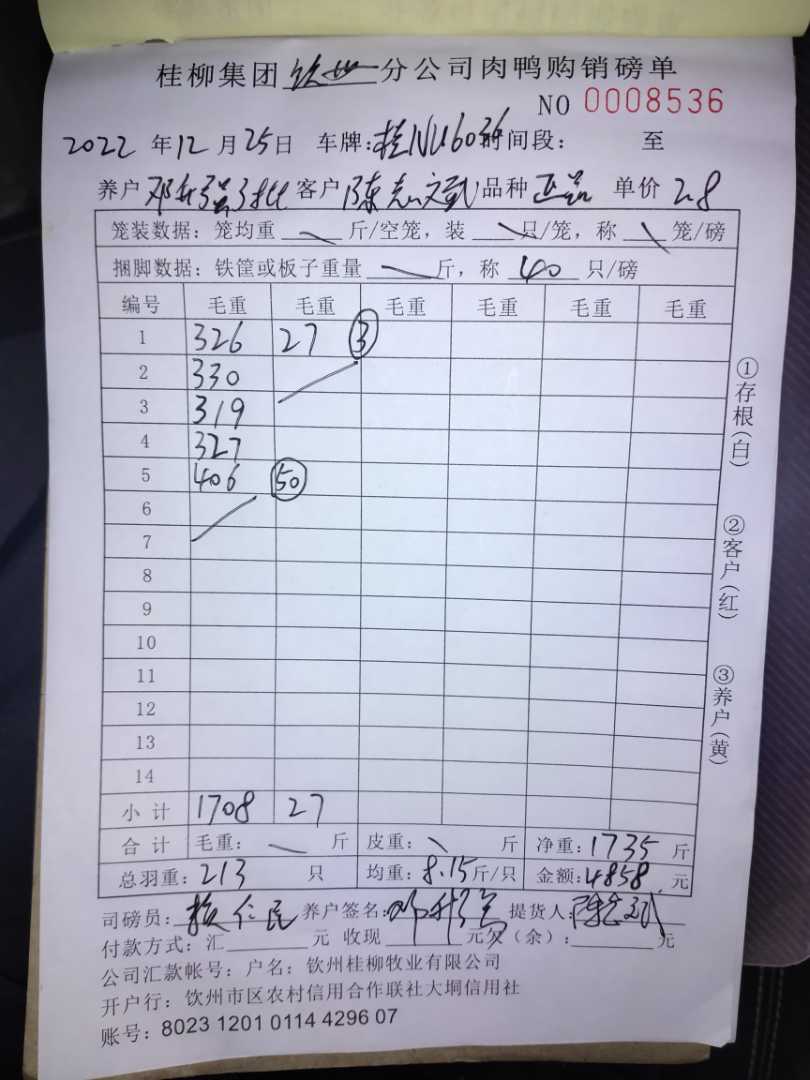 桂柳集团 钦州 分公司肉鸭购销磅单
NO 0008536
2022 年 12 月 25 日 车牌: 时间段: 至
养户 客户 陈志文武 品种 正品 单价 2.8
笼装数据: 笼均重 斤/空笼, 装 只/笼, 称 笼/磅
捆脚数据: 铁筐或板子重量 斤, 称 40 只/磅
编号 毛重 毛重 毛重 毛重 毛重 毛重
1 326 27 ③
2 330
3 319
4 327
5 406 50
6
7
8
9
10
11
12
13
14
小计 1708 27
合计 毛重: 斤 皮重: 斤 净重: 1735 斤
总羽重: 213 只 均重: 8.15 斤/只 金额: 4858 元
司磅员: 仁民 养户签名: 提货人:
付款方式: 汇 元 收现 元欠(余): 元
公司汇款帐号: 户名: 钦州桂柳牧业有限公司
开户行: 钦州市区农村信用合作联社大垌信用社
账号: 8023 1201 0114 4296 07
①存根(白)
②客户(红)
③养户(黄)